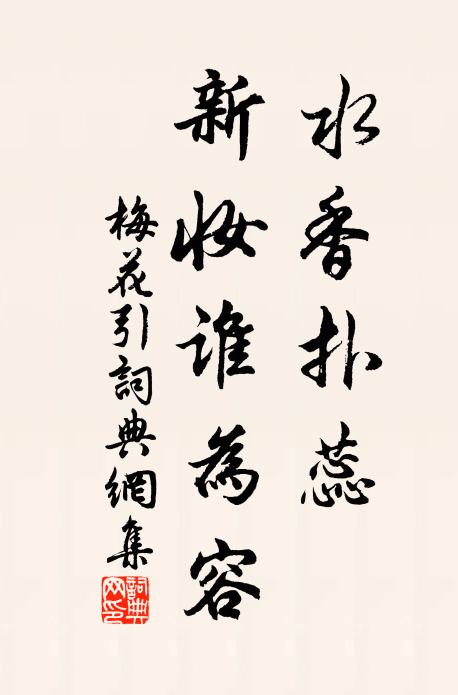 水香扑蕊
新妆谁為容
梅花引詞典網集
詞典网印